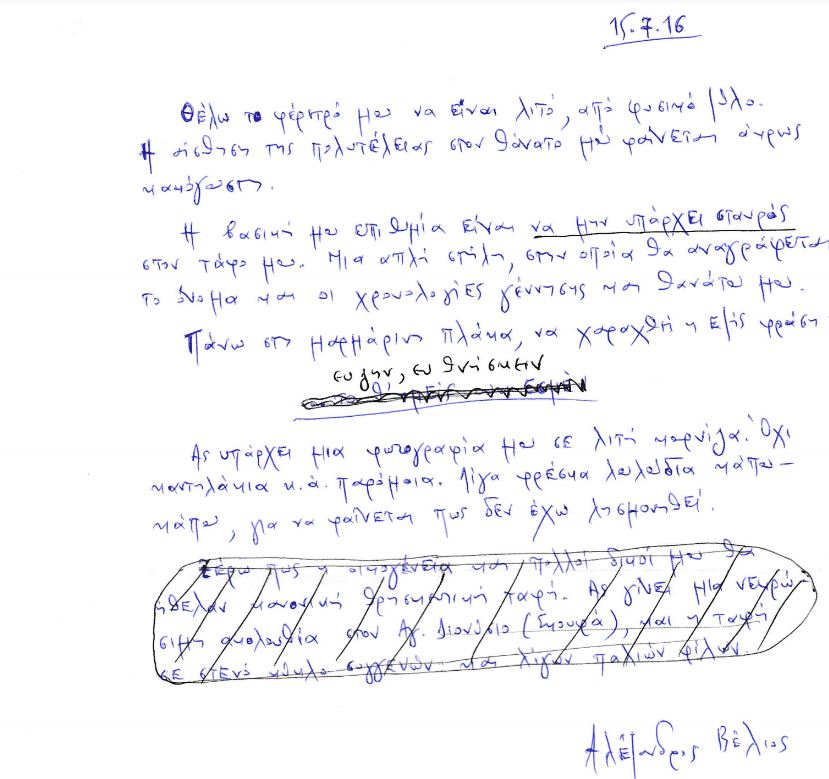 15.7.16
Θέλω το φέρετρό μου να είναι λιτό, από φυσικό ξύλο.
Η αίσθηση της πολυτέλειας στον θάνατο μού φαίνεται άκρως
κακόγουστη.
Η βασική μου επιθυμία είναι να μην υπάρχει σταυρός
στον τάφο μου. Μια απλή στήλη, στην οποία θα αναγράφεται
το όνομα και οι χρονολογίες γέννησης και θανάτου μου.
Πάνω στη μαρμάρινη πλάκα, να χαραχθή η εξής φράση
ευ ζην, ευ θνήσκειν
Ας υπάρχει μια φωτογραφία μου σε λιτή κορνίζα. Όχι
καντηλάκια κ.ά. παρόμοια. Λίγα φρέσκα λουλούδια κάπου-
κάπου, για να φαίνεται πως δεν έχω λησμονηθεί.
Ξέρω πως η οικογένεια και πολλοί δικοί μου θα
ήθελαν κανονική θρησκευτική ταφή. Ας γίνει μια νεκρώ-
σιμη ακολουθία στον Αγ. Διονύσιο (Σκουφά), και η ταφή
σε στενό κύκλο συγγενών και λίγων παλιών φίλων.
Αλέξανδρος Βέλιος